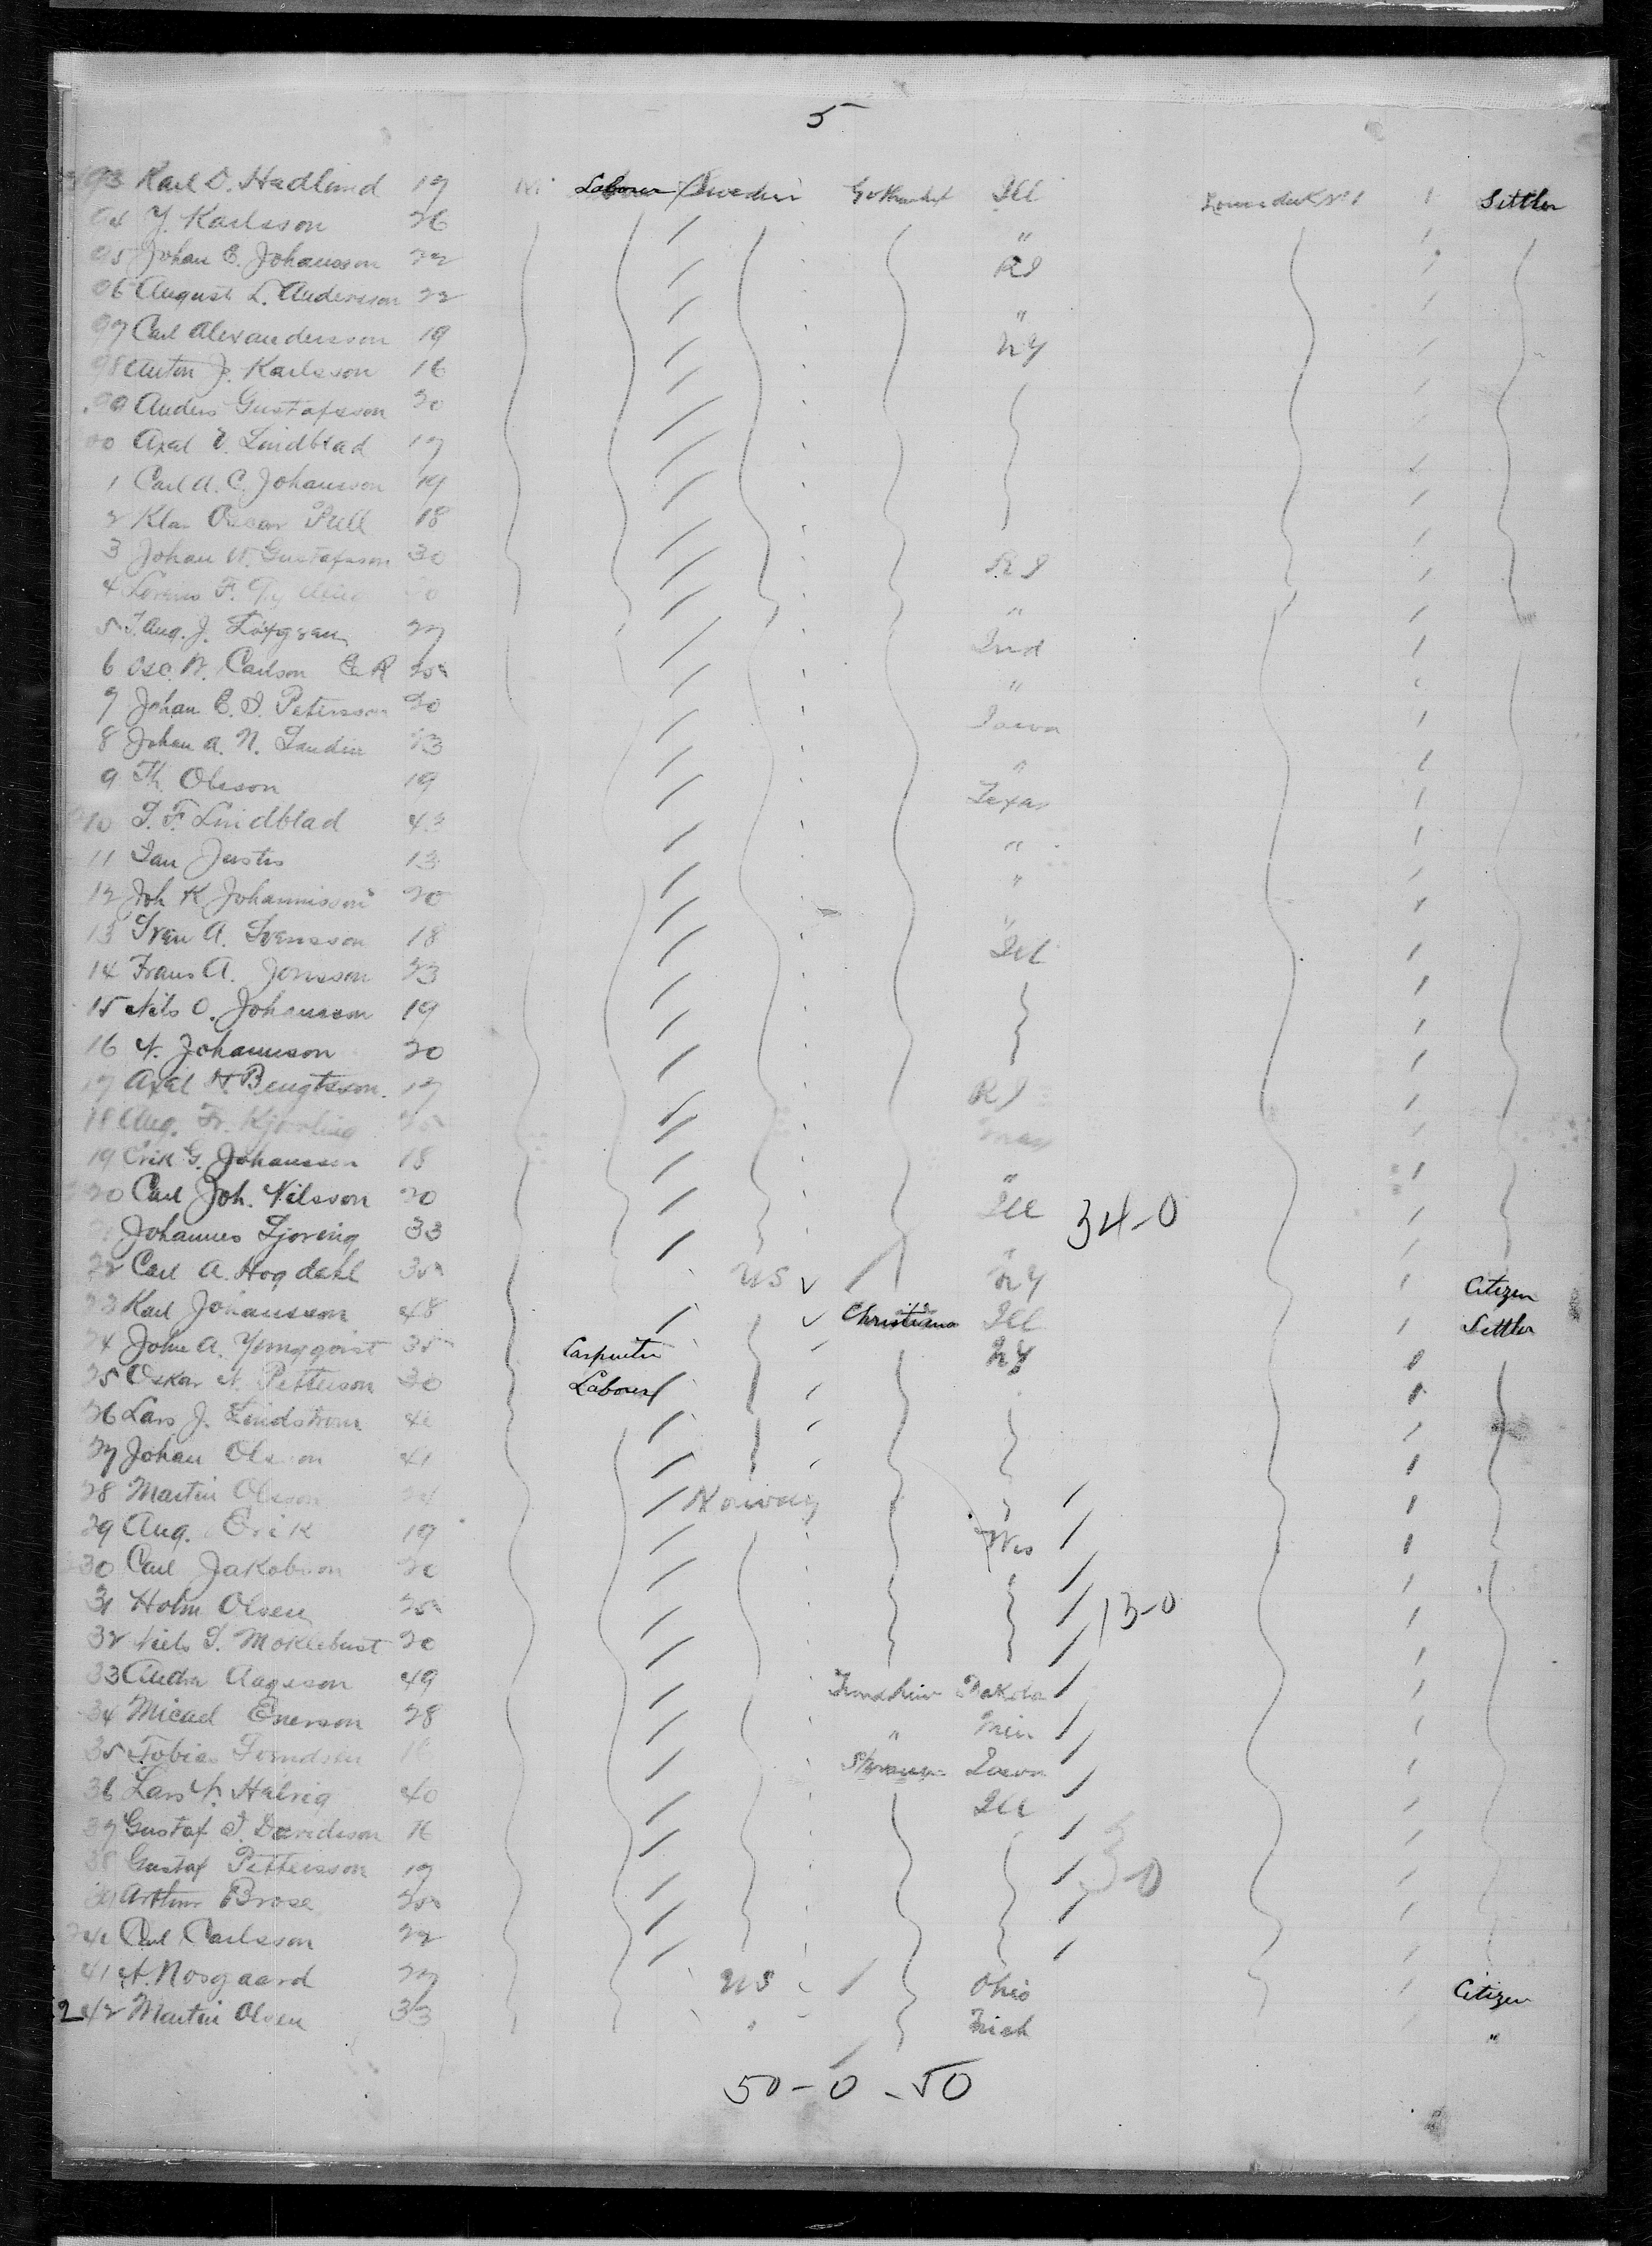 5
93 Karl O. Hedlund 17 M Laborer Sweden Ill Lower deck No 1 1 Settler
94 J. Karlsson 26 "
95 Johan E. Johansson 22 RI
96 August L. Andersson 22 "
97 Carl Alexandersson 19 NY
98 Anton J. Karlsson 16
99 Anders Gustafsson 20
00 Axel E. Lindblad 17
1 Carl A. C. Johansson 19
2 Klas Oscar Frell 18
3 Johan W. Gustafsson 30 RI
4 F. 20 "
5 F. Aug. J. Löfgren 27 Ind
6 Osc. W. Carlson 25 "
7 Johan E. S. Petersson 20 Iowa
8 Johan A. N. Landin 23 "
9 Th. Olsson 19 Texas
10 S. F. Lindblad 43 "
11 Jan Justus 13 "
12 Joh K Johannisson 20 "
13 Sven A. Svensson 18 Ill
14 Frans A. Jonsson 23
15 Nils O. Johansson 19
16 N. Johannson 20
17 Axel H. Bengtsson 17 RI
18 Aug. Fr. Kjerling 25 Mass
19 Erik G. Johansson 18 "
20 Carl Joh. Nilsson 20 Ill 34-0
21 Johannes Ljoring 33 "
22 Carl A. Hogdahl 35 US NY Citizen
23 Karl Johansson 48 Christiana Ill Settler
24 John A. Youngqvist 35 Carpenter NY
25 Oskar N. Petterson 30 Laborer
26 Lars J. Lindstrom 40
27 Johan Olsson 41
28 Martin Olsson 24 Norway
29 Aug. Erik 19 Wis
30 Carl Jakobson 20
31 Holm Olsen 25 13-0
32 Niels S. Moklebust 20
33 Andr Aageson 49 Trondhein Dakota
34 Micael Enerson 28 " Min
35 Tobias 16 Iowa
36 Lars N. 40 Ill
37 Gustaf A. Davidson 16
38 Gustaf Pettersson 17 3-0
39 Arthur Brose 25
40 Carl Carlsson 22
41 A. Nosgaard 27 US Ohio Citizen
2 42 Martin Olsen 33 " Mich "
50-0-50